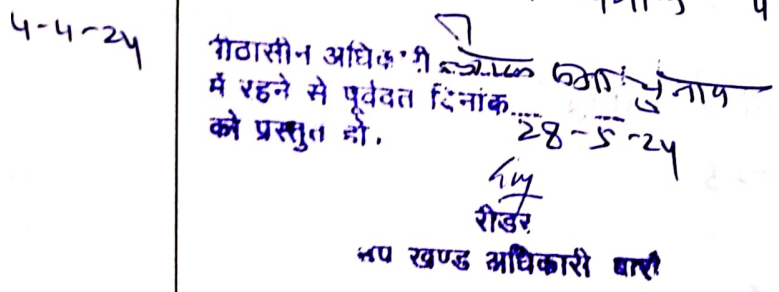 4-4-24
पीठासीन अधिकारी चुनाव
में रहने से पूर्ववत दिनांक.... 28-5-24
को प्रस्तुत हो.
रीडर
उप खण्ड अधिकारी बारी